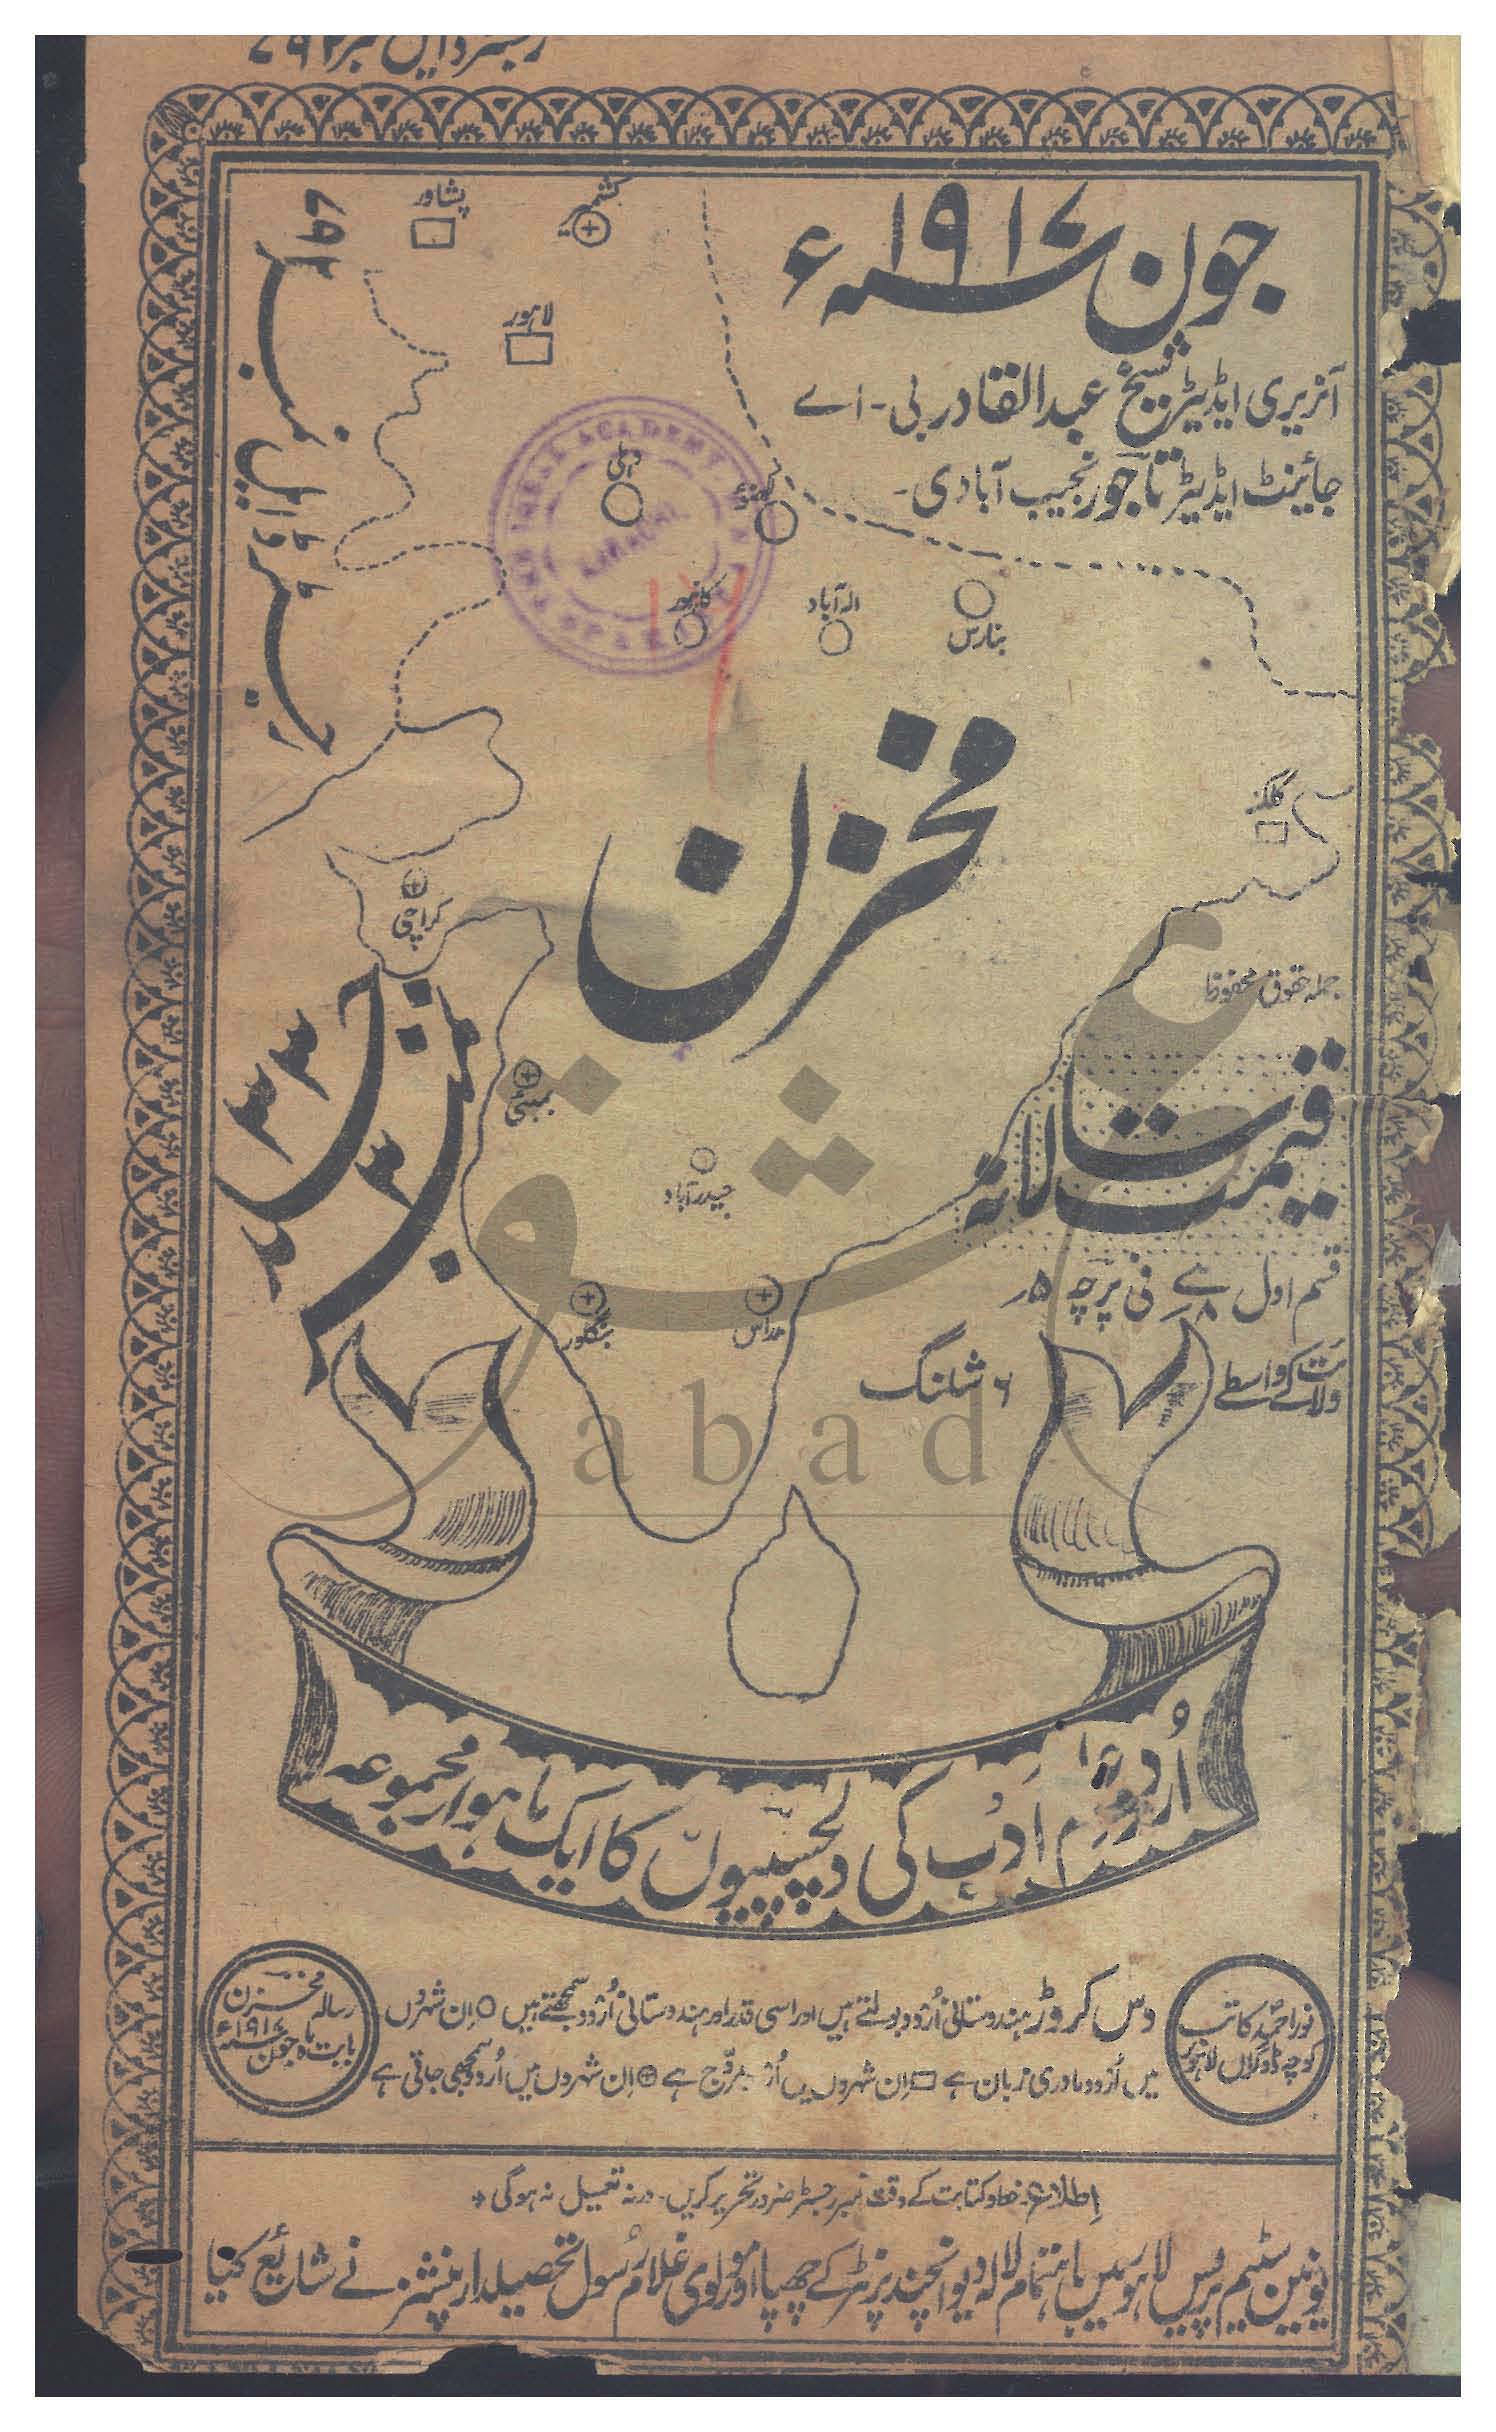 جون ۱۹۱۷ء
آنریری ایڈیٹر شیخ عبدالقادر بی۔ اے
جائینٹ ایڈیٹر تاجور نجیب آبادی۔
کشمیر
پشاور
لاہور
دہلی
لکھنؤ
کانپور
الہ آباد
بنارس
رجسٹرڈ ایل نمبر
مخزن
کراچی
جملہ حقوق محفوظ
بمبئی
حیدرآباد
قیمت سالانہ
نمبر ۳
جلد ۳۳
قسم اول فی پرچہ ۵ر
بنگلور
مدراس
ولایت کے واسطے ۶ شلنگ
abad
اُردو علم ادب کی دلچسپیوں کا ایک ماہوار مجموعہ
نور احمد کاتب
کوچہ ڈوگراں لاہور
دس کروڑ ہندوستانی اُردو بولتے ہیں اور اسی قدر اور ہندوستانی اُردو سمجھتے ہیں ○ اِن شہروں
میں اُردو مادری زبان ہے □ اِن شہروں میں اُردو مروّج ہے ⊕ اِن شہروں میں اُردو سمجھی جاتی ہے
رسالہ مخزن
بابت ماہ جون ۱۹۱۷ء
اِطلاع۔ خط و کتابت کے وقت نمبر رجسٹر ضرور تحریر کریں۔ ورنہ تعمیل نہ ہوگی
یونین سٹیم پریس لاہور میں باہتمام لالہ دیوانچند پرنٹر کے چھپا اور مولوی غلام رسول تحصیلدار پنشنر نے شائع کیا